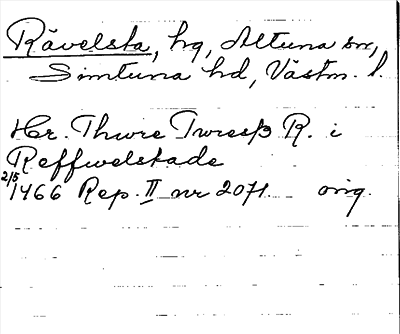 Rävelsta, hg, Altuna sn,
Simtuna hd, Västm. l.
Hr. Thure Turesß R. i
Reffwelstade
2/5 1466 Rep. II nr 2071. orig.